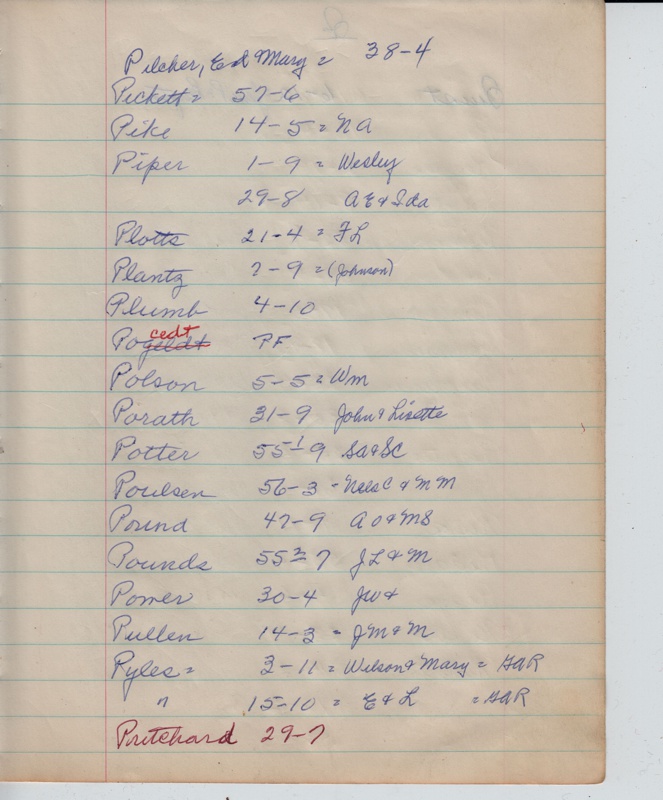 Pilcher, Ed & Mary = 38-4
Pickett = 57-6
Pike 14-5 = NA
Piper 1-9 = Wesley
29-8 A E & Ida
Plotts 21-4 = FL
Plantz ?-9 = (Johnson)
Plumb 4-10
Pogcedt PF
Polson 5-5 = Wm
Porath 31-9 John & Lisette
Potter 55½-9 SA & SC
Poulsen 56-3 = Nels C & M M
Pound 47-9 A O & MS
Pounds 55²-7 J L & M
Power 30-4 JW &
Pullen 14-3 = J M & M
Pyles = 3-11 = Wilson & Mary = GAR
" 15-10 = E & L = GAR
Pritchard 29-7